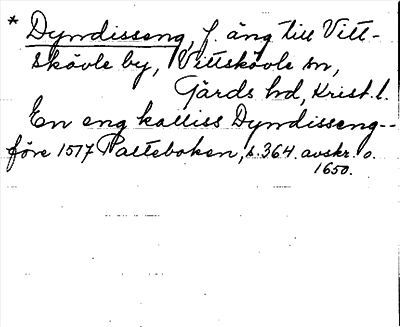 * Dyndisseng, f. äng till Vitt-
skövle by, Vittskövle sn,
Gärds hd, Krist. l.
En eng kalliss Dyndisseng--
före 1517 Palteboken, s. 364. avskr. o.
1650.